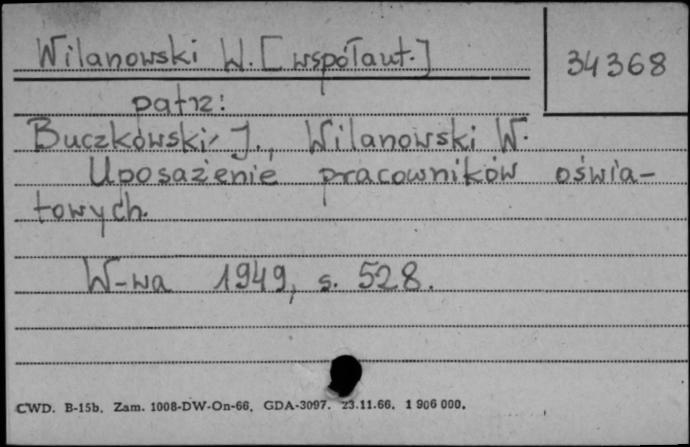 Wilanowski W. [współaut.]
34368
patrz:
Buczkowski J., Wilanowski W.
Uposażenie pracowników oświa-
towych.
W-wa 1949, s. 528.
CWD. B-15b. Zam. 1008-DW-On-66. GDA-3097. 23.11.66. 1 906 000.